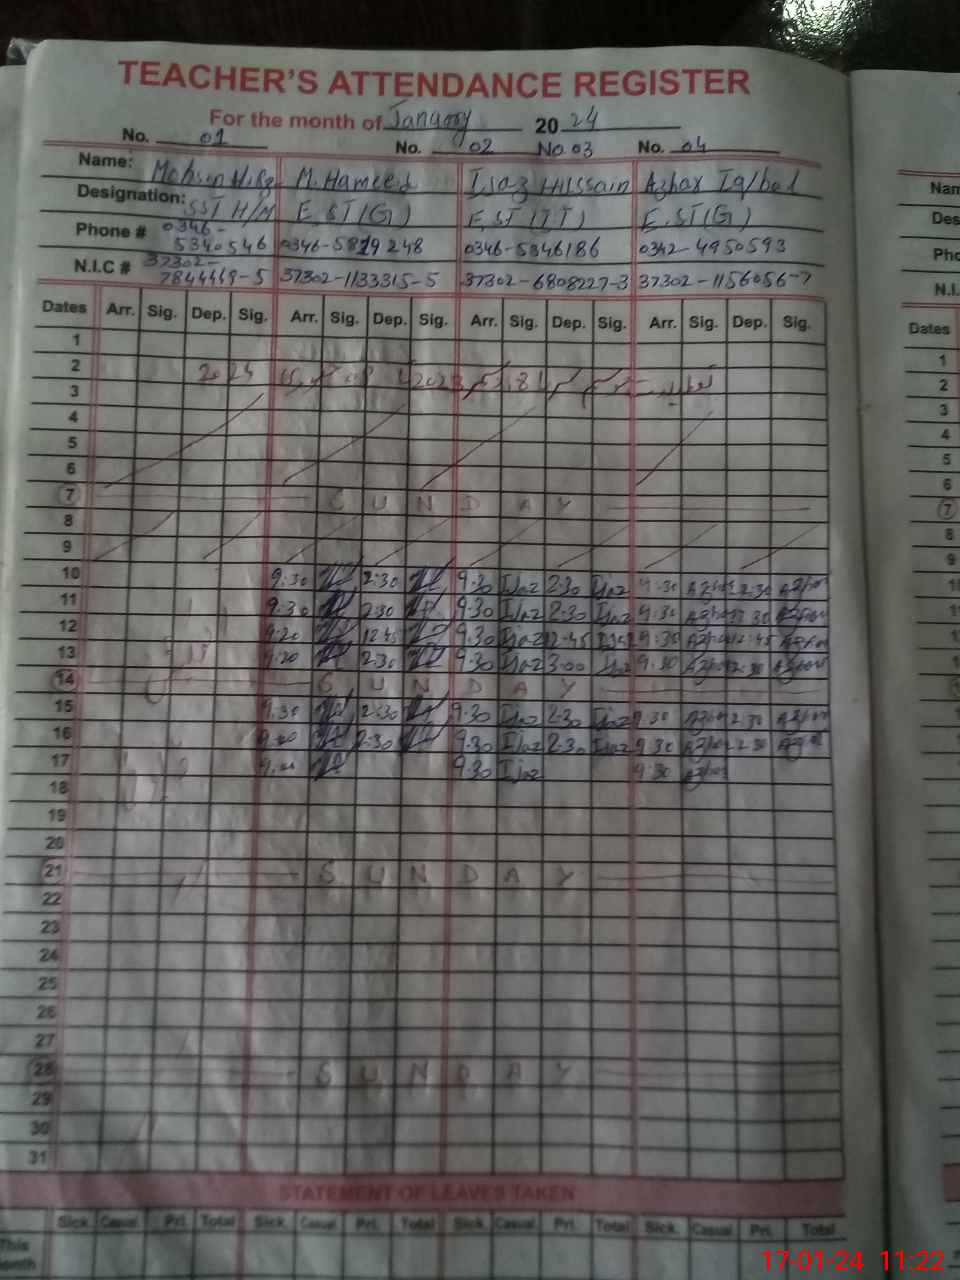 TEACHER'S ATTENDANCE REGISTER
For the month of January 2024
No. 01 No. 02 No 03 No. 04
Name: Mohsen M. Hameed Ijaz Hussain Azhar Iqbal
Designation: SST H/M E.ST(G) E.ST(IT) E.ST(G)
Phone # 0346-5340546 0346-5819248 0346-5346186 0342-4950593
N.I.C # 37302-7844449-5 37302-1133315-5 37302-6808227-3 37302-1156056-7
Dates Arr. Sig. Dep. Sig. Arr. Sig. Dep. Sig. Arr. Sig. Dep. Sig. Arr. Sig. Dep. Sig.
1
2
3
4
5
6
7 SUNDAY
8
9
10 9:30 2:30 9:30 Ijaz 2:30 Ijaz 9:30 Azhar 2:30 Azhar
11 9:30 2:30 9:30 Ijaz 2:30 Ijaz 9:30 Azhar 2:30 Azhar
12 9:20 12:45 9:30 Ijaz 12:45 Ijaz 9:30 Azhar 12:45 Azhar
13 9:20 2:30 9:30 Ijaz 3:00 Ijaz 9:30 Azhar 2:30 Azhar
14 SUNDAY
15 9:30 2:30 9:30 Ijaz 2:30 Ijaz 9:30 Azhar 2:30 Azhar
16 2:30 9:30 Ijaz 2:30 Ijaz 9:30 Azhar 2:30 Azhar
17 9:30 Ijaz 9:30 Azhar
18
19
20
21 SUNDAY
22
23
24
25
26
27
28 SUNDAY
29
30
31
STATEMENT OF LEAVES TAKEN
Sick. Casual Pri. Total Sick. Casual Pri. Total Sick. Casual Pri. Total Sick. Casual Pri. Total
This
month
Nam
Des
Pho
N.I.
Dates
1
2
3
4
5
6
7
8
9
17-01-24 11:22